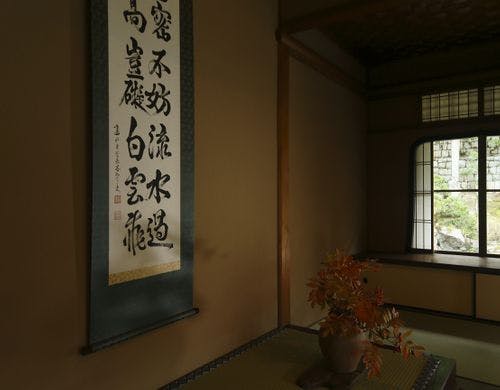 密不妨流水過
高豈礙白雲飛